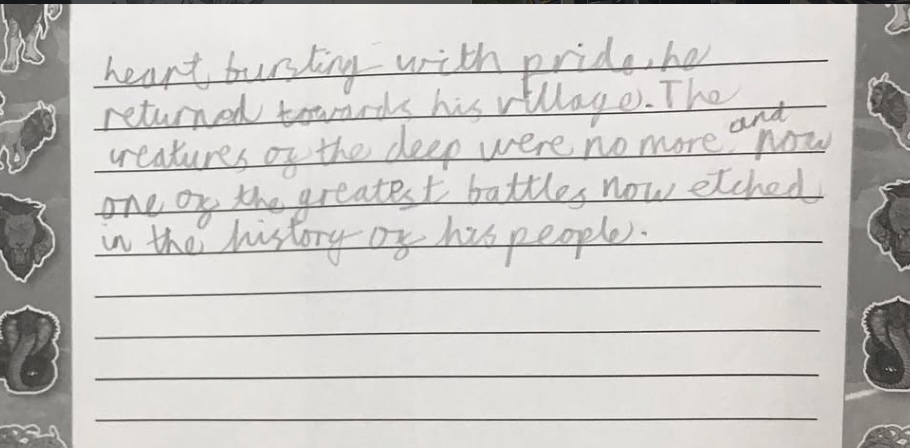 heart bursting with pride, he
returned towards his village. The
creatures of the deep were no more and now
one of the greatest battles now etched
in the history of his people.